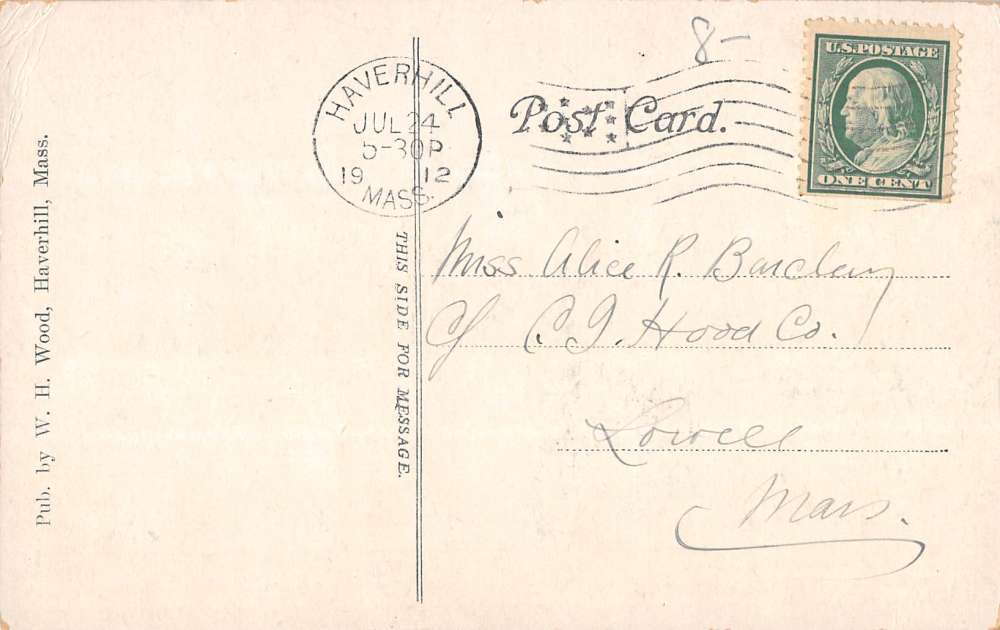 8-
U.S. POSTAGE
ONE CENT
HAVERHILL
JUL 24
5-30P
19 12
MASS.
Post Card.
THIS SIDE FOR MESSAGE.
Pub. by W. H. Wood, Haverhill, Mass.
Miss Alice R. Barclay
c/o C. I. Hood Co.
Lowell
Mass.